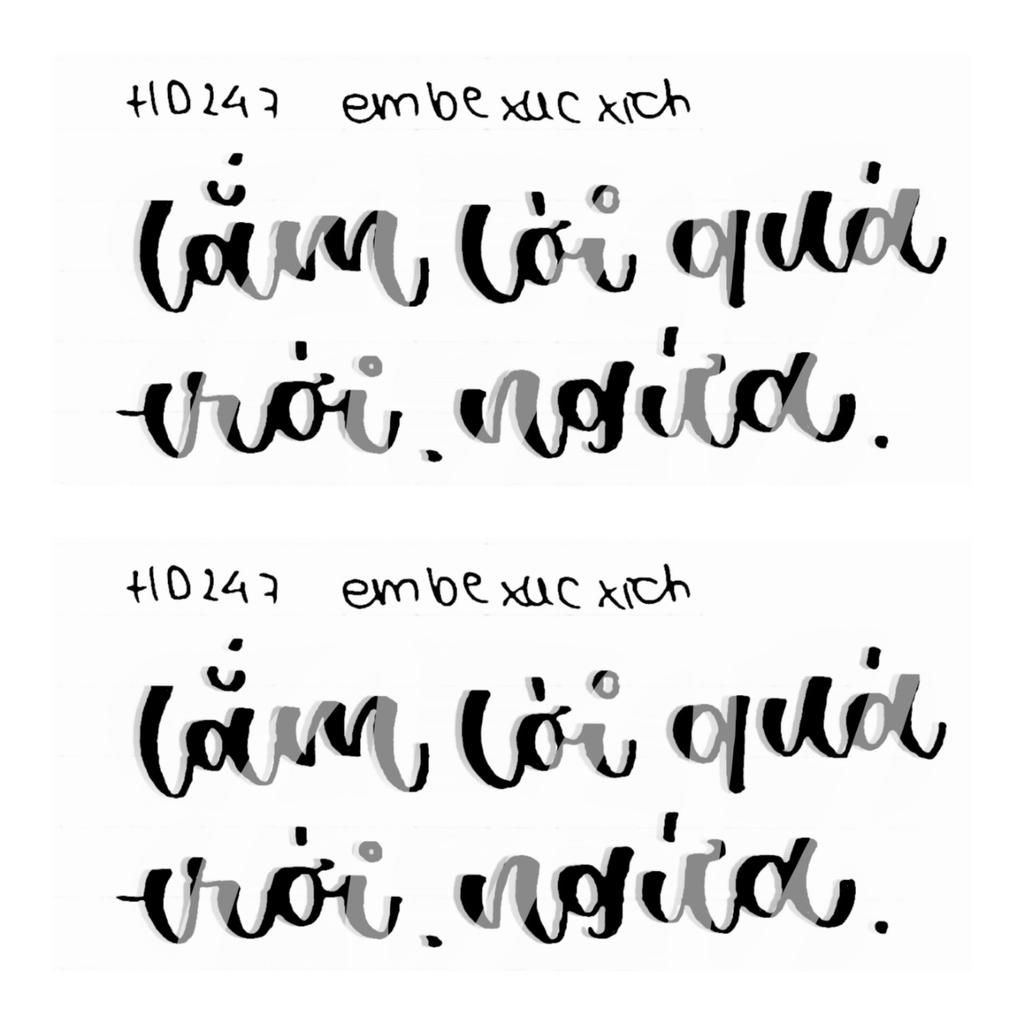 HD247 em be xuc xich
lắm lời quá
trời. ngứa.
HD247 em be xuc xich
lắm lời quá
trời. ngứa.